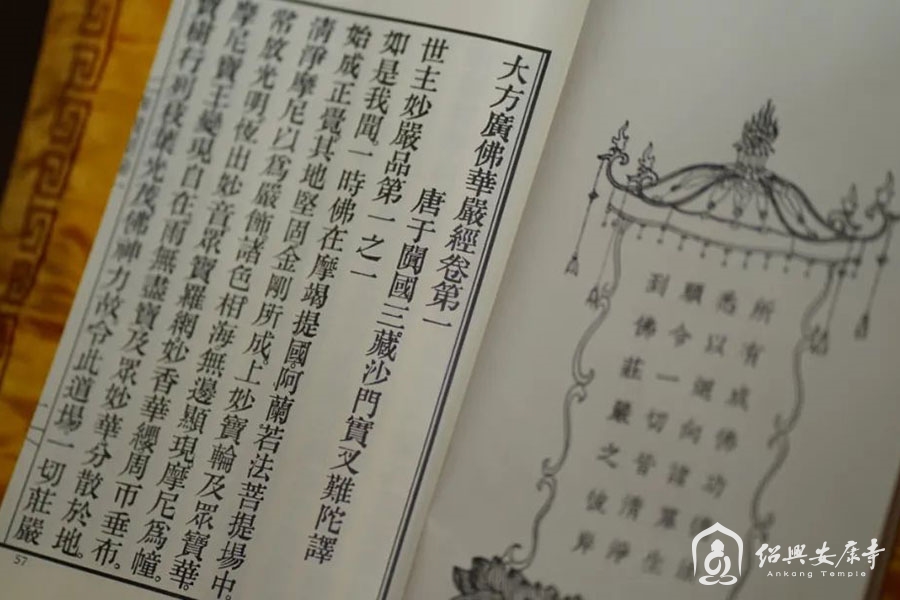 所有成佛功德
悉以迴向諸眾生
願令一切皆清淨
到佛莊嚴之彼岸
大方廣佛華嚴經卷第一
唐于闐國三藏沙門實叉難陀譯
世主妙嚴品第一之一
如是我聞。一時佛在摩竭提國。阿蘭若法菩提場中。
始成正覺。其地堅固金剛所成。上妙寶輪及眾寶華。
清淨摩尼以為嚴飾。諸色相海無邊顯現。摩尼為幢。
常放光明。恆出妙音。眾寶羅網妙香華纓周帀垂布。
摩尼寶王變現自在。雨無盡寶及眾妙華分散於地。
寶樹行列枝葉光茂。佛神力故令此道場一切莊嚴
57
绍興安康寺
Ankang Temple